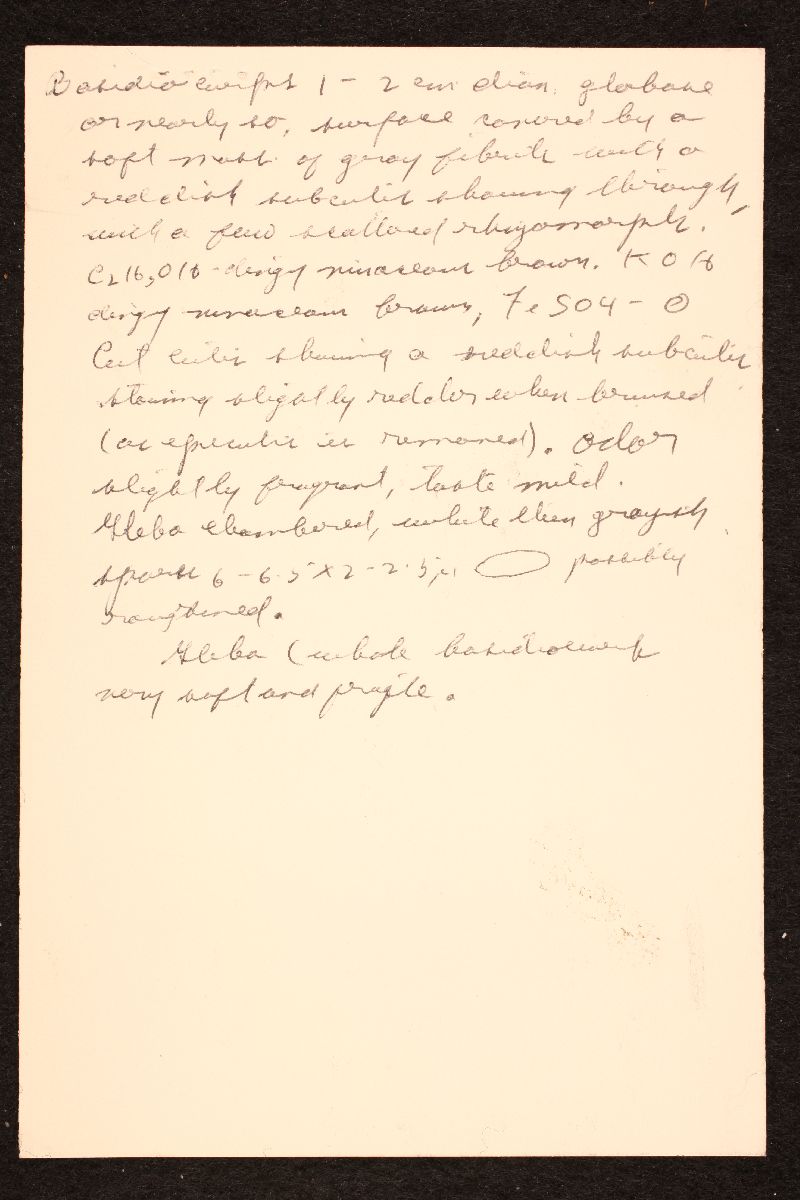 Basidiocarps 1 - 2 cm diam. globose
or nearly so, surface covered by a
soft mass of gray fibrils with a
reddish subcutis showing through,
with a few scattered rhizomorphs.
C2H5OH - dingy vinaceous brown. KOH
dingy vinaceous brown, FeSO4 - O
Cut cutis showing a reddish subcutis
staining slightly redder when bruised
(as epicutis is removed). Odor
slightly fragrant, taste mild.
Gleba chambered, white then grayish
spores 6 - 6.5 X 2 - 2.5 µ possibly
roughened.
Gleba (whole basidiocarp
very soft and fragile.